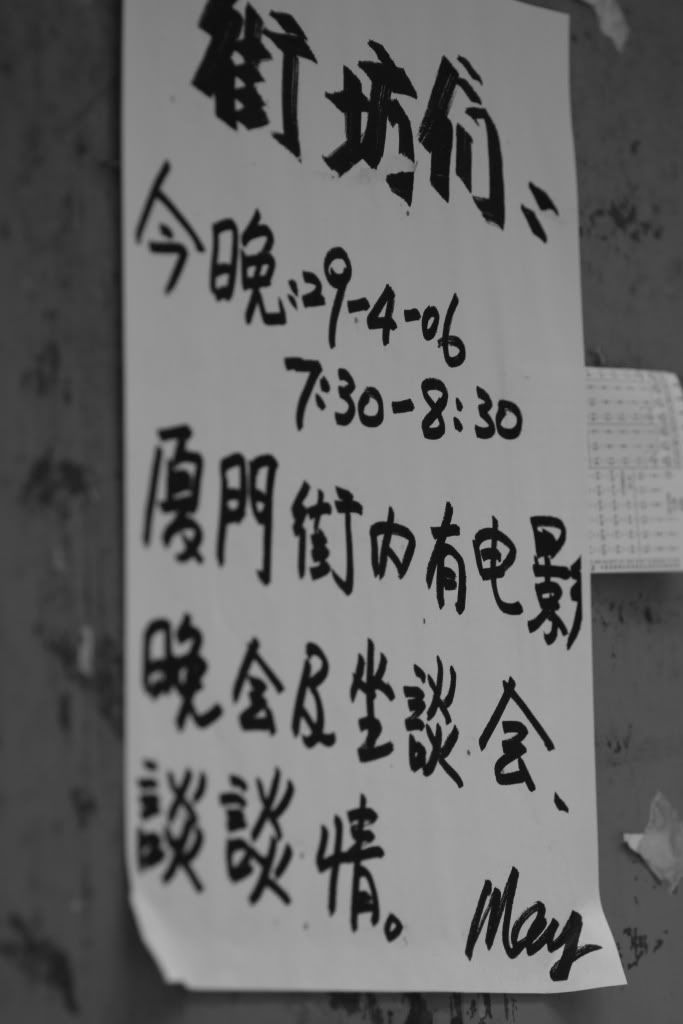 街坊們：
今晚：29-4-06
7:30-8:30
厦門街内有电影
晚会及坐談会、
談談情。
May